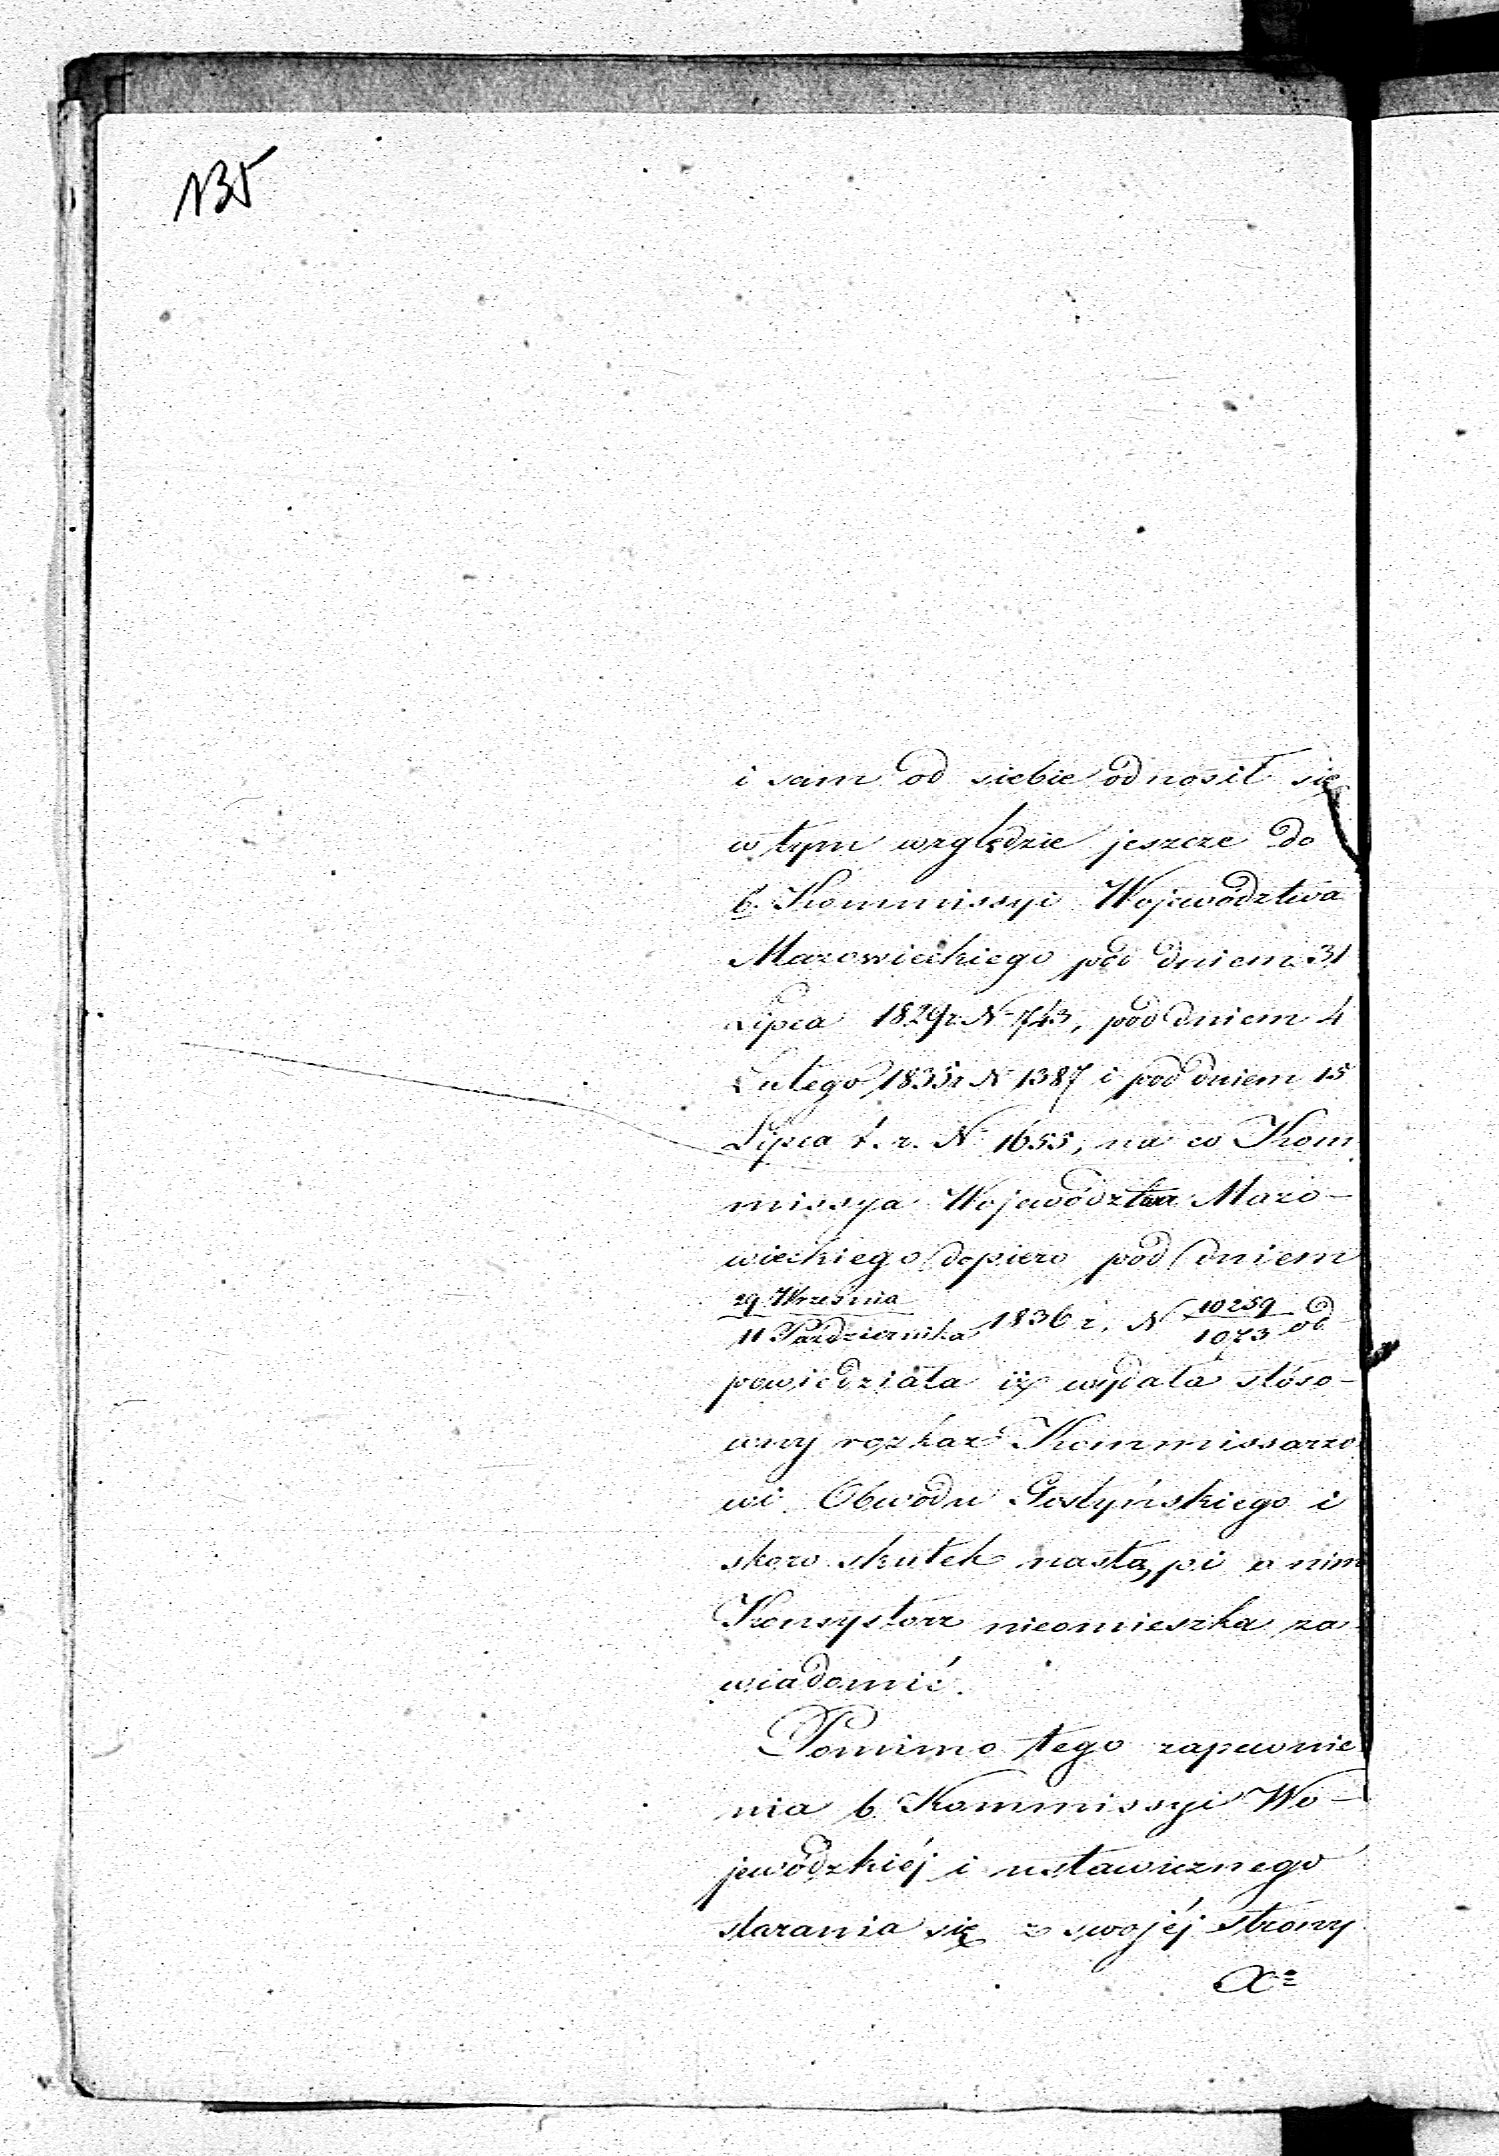 135
i sam od siebie odnosił się
w tym względzie jeszcze do
b. Kommissyi Województwa
Mazowieckiego pod dniem 31
Lipca 1829 r. N 743, pod dniem 4
Lutego 1835 r N 1387 i pod dniem 15
Lipca t. r. N 1655, na co Kom
missya Województwa Mazo-
wieckiego dopiero pod dniem
29 Września / 11 Października 1836 r. N 10259 / 1073 od
powiedziała iż wydała stóso-
wny rozkaz Kommissarzo
wi Obwodu Gostyńskiego i
skoro skutek nastąpi o nim
Konsystorz nieomieszka za
wiadomić.
Pomimo tego zapewnie
nia b. Kommissyi Wo-
jewódzkiéj i ustawicznego
starania się z swojéj strony
X=